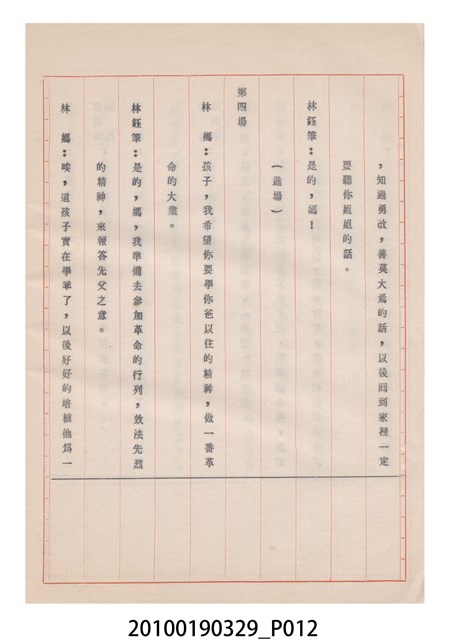 ，知過勇改，善莫大焉的話，以後回到家裡一定
要聽你姐姐的話。
林鈺華：是的，媽！
（過場）
第四場
林　媽：孩子，我希望你要學你爸以往的精神，做一番革
命的大業。
林鈺華：是的，媽，我準備去參加革命的行列，效法先烈
的精神，來報答先父之意。
林　媽：唉，這孩子實在學乖了，以後好好的培植他爲一
20100190329_P012